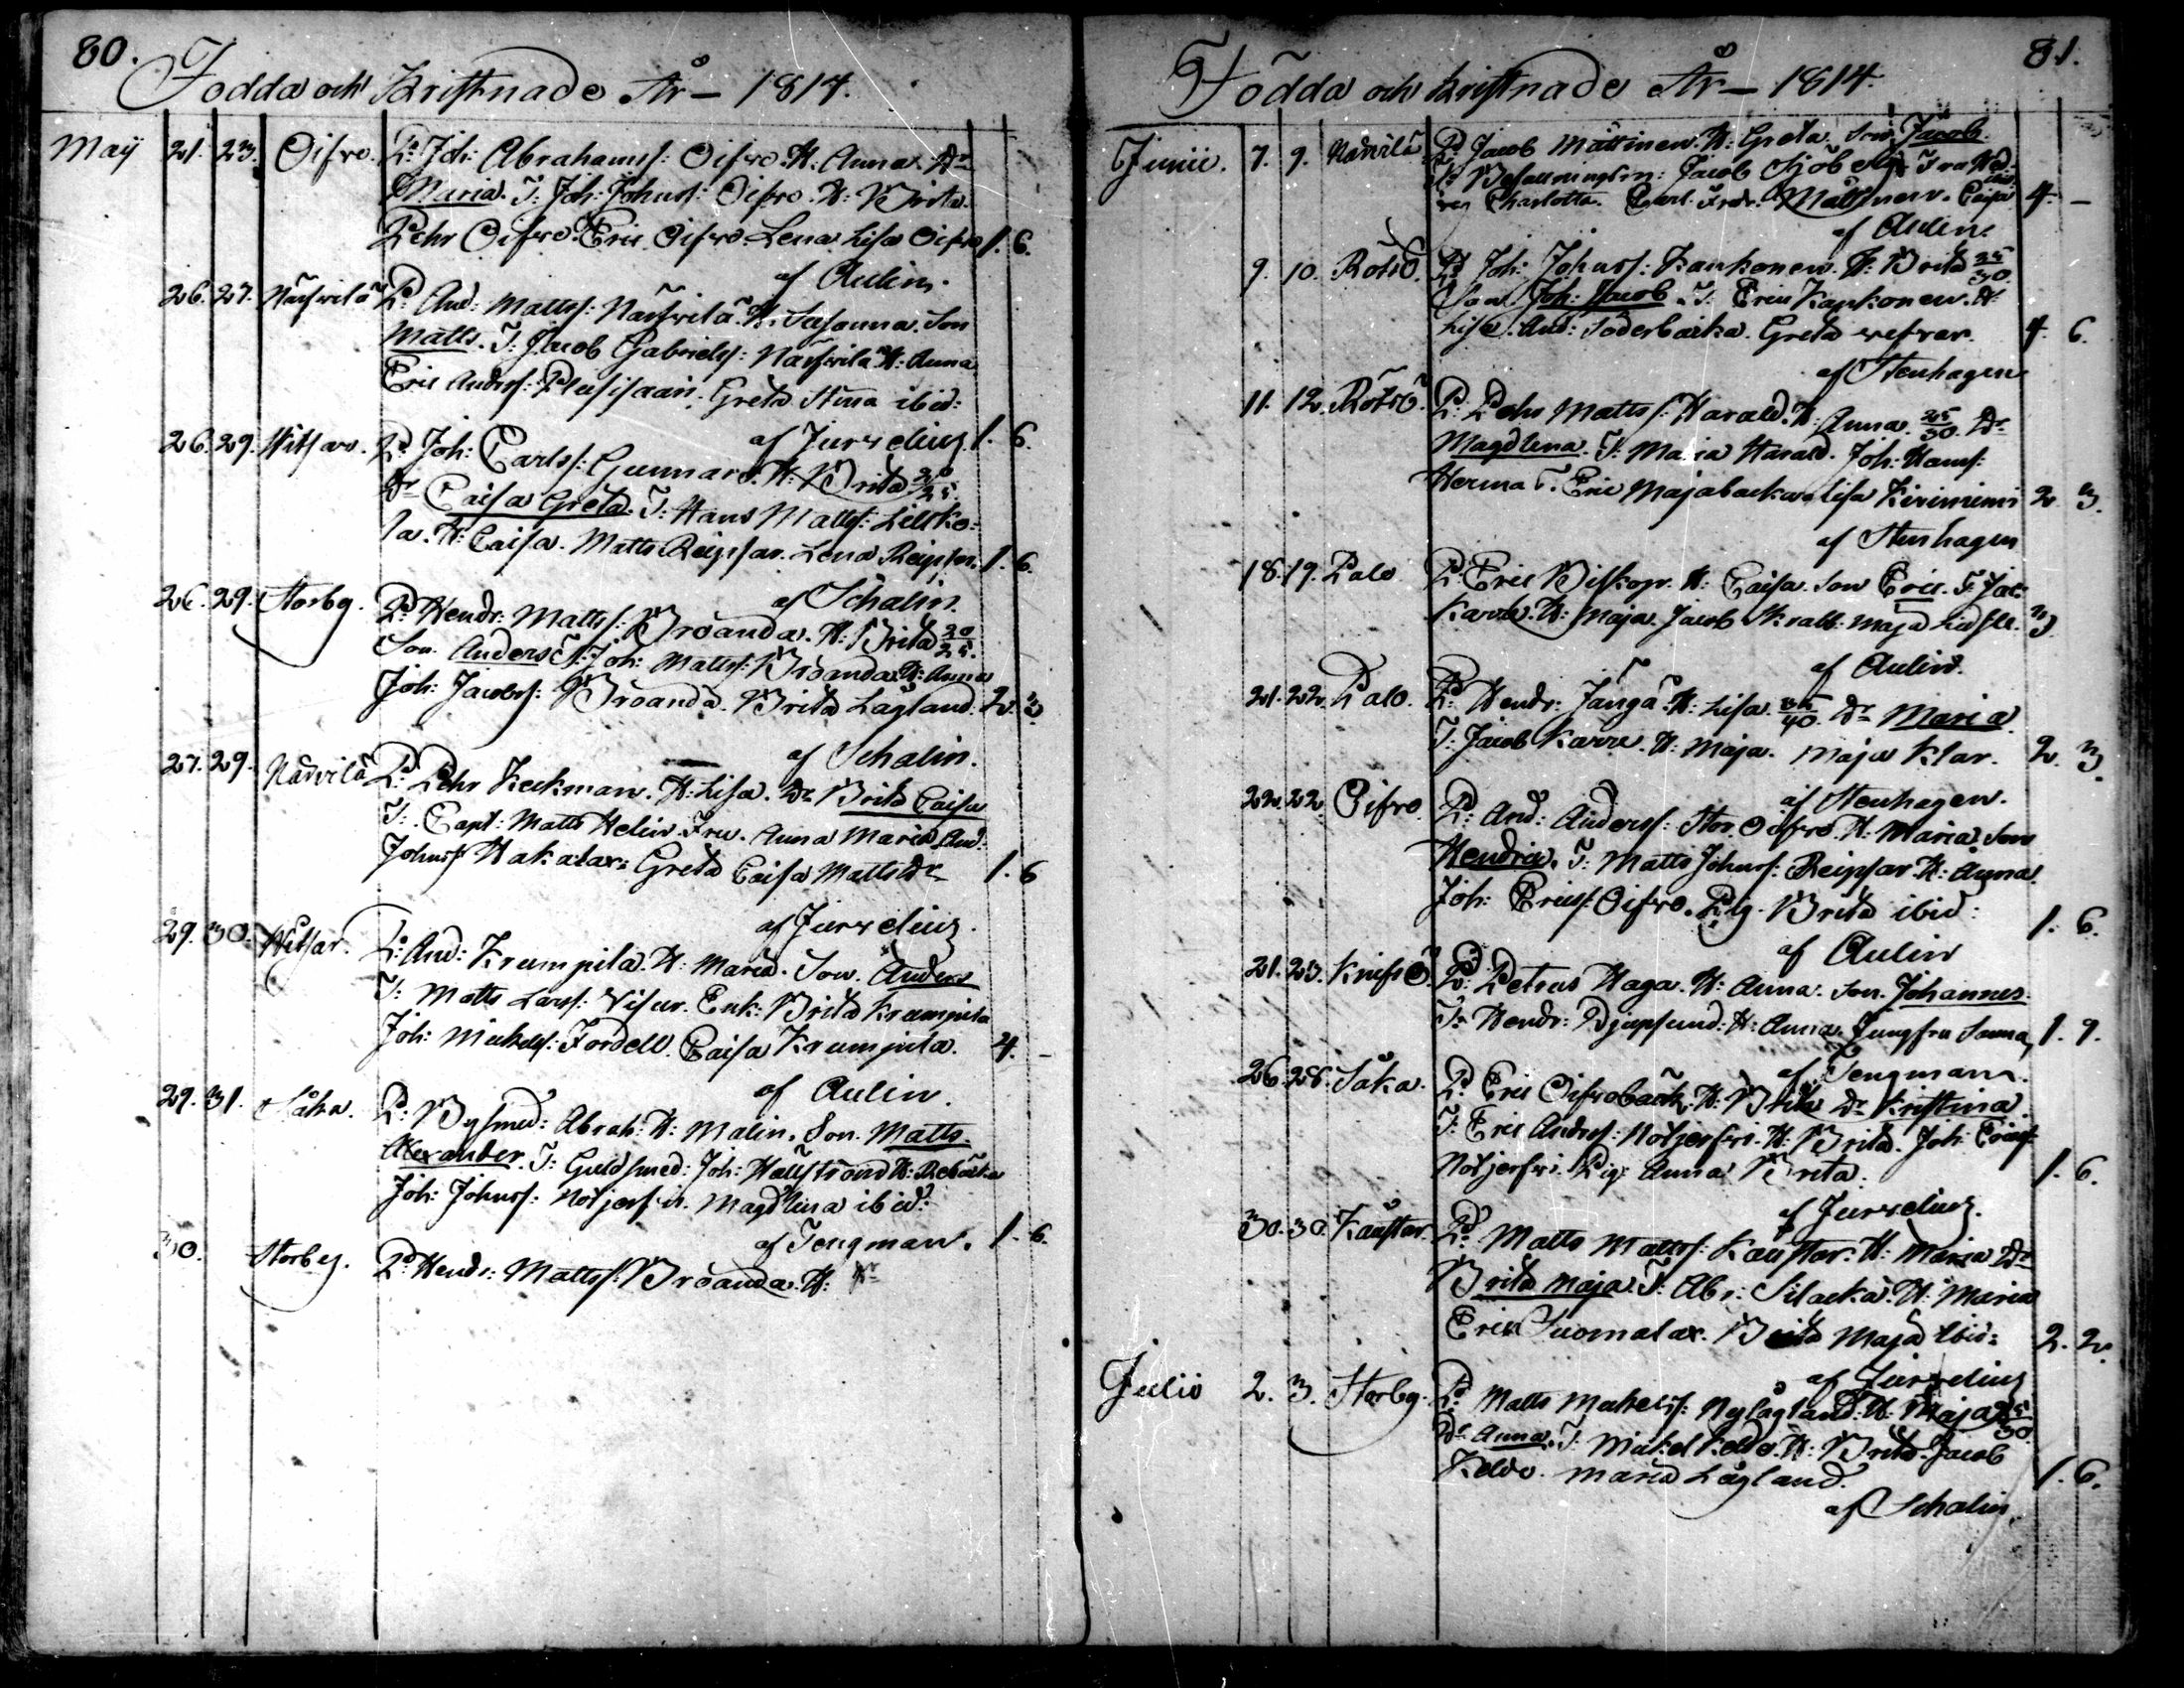 80.
Födda och Kristnade År — 1814.
Maij 21. 23. Oifvo. P: Joh: Abrahamss: Oifvo. H: Anna. Dr
Maria. T: Joh: Johnss: Oifvo. H: Brita.
Pehr Oifvo. Eric Oifvo. Lena Lisa Oifvo 1. 6.
af Aulin.
26. 27. Närvilä P: And: Mattss: Närvilä. H: Susanna. Son
Matts. T: Jacob Gabrielss: Närvilä H: Anna
Eric Anderss: Greta Stina ibid:
af Jurvelius 1. 6.
26. 29. Witsar. P: Joh: Carlss: Gunnars. H: Brita 20/25.
Dr Caisa Greta. T: Hans Mattss: Lillko-
la. H: Caisa. Matts Reipsar. Lena Reipsar. 1. 6.
af Schalin.
26. 29. Storby. P: Hendr: Mattss: Broanda. H: Brita 20/25.
Son. Anders T: Joh: Mattss: Broanda. H: Anna
Joh: Jacobss: Broanda. Brita Lågland. 2. 3
af Schalin.
27. 29. P: Pehr Keckman. H: Lisa. Dr Brita Caisa
T: Capt: Matts Helin. Fru. Anna Maria And:
Johnss: Hakalax: Greta Caisa Matts Dr 1. 6
af Jurvelius.
29. 30. Witsar. P: And: Krumpila. H: Maria. Son. Anders
T: Matts Larss: Visur. Enk: Brita Krumpila
Joh: Mickelss: Fordell. Caisa Krumpila. 4. -
af Aulin.
29. 31. Såka. P: Bysmed: Abrah: H: Malin. Son. Matts
Alexander. T: Guldsmed: Joh: Hällstrand H: Rebäcka
Joh: Johnss: Magdlena ibid:
af Tengman. 1. 6.
30. Storby. P: Hendr: Mattss: Broanda. H: Dr
81.
Födda och Kristnade År — 1814.
Junii. 7. 9. P: Jacob Mattinen. H: Greta. Son Jacob.
T: Jacob Sjöberg Fru Hed-
vig Charlotta. Carl Fredr: Mattinen. Caisa 4. -
af Aulin.
9. 10. Rötsö. P: Joh: Johnss: Kankonen. H: Brita 25/30.
Son Joh: Jacob. T: Eric Kankonen. H:
Lisa. And: Söderbacka. Greta 4. 6.
af Stenhagen
11. 12. Rötsö. P: Pehr Mattss: Harald. H: Anna. 25/30. Dr
Magdlena. T: Maria Harald. Joh: Hanss:
Herma T. Eric Majabacka Lisa Kiviniemi 2 3.
af Stenhagen
18. 19. Palo P: Eric Biskop. H: Caisa. Son Eric. T: Jac:
Karvk. H: Maja. Jacob Maja 3
af Aulin.
21. 22. Palo. P: Hendr: Jänga. H: Lisa. 35/40. Dr Maria.
T: Jacob Karve. H: Maja. Maja Klar. 2. 3.
af Stenhagen.
22. 22. Oifvo. P: And: Anderss: Stor Oifvo. H: Maria. Son
Hendric. T: Matts Johnss: Reipsar. H: Anna.
Joh: Ericss: Oifvo. Pig. Brita ibid: 1. 6.
af Aulin
21. 23. Knifsö. P: Petrus Haga. H: Anna. Son. Johannes.
T: Hendr: Djupsund: H: Anna. Jungfru Sanna 1. 9.
af Tengman.
26. 28. Såka. P: Eric Oifvobäck. H: Brita Dr Kristina.
T: Eric Anderss: H: Brita. Joh: Ericss:
Pig: Anna Brita. 1. 6.
af Jurvelius.
30. 30. Kaustar. P: Matts Mattss: Kaustar: H: Maria Dr
Brita Maja. T: Abr: Silacka. H: Maria
Eric Suomalax. Brita Maja ibid: 2. 2.
af Jurvelius
Julii 2. 3. Storby. P: Matts Mickelss: Nylågland: H: Maja 25/30.
Dr Anna. T: Mickel Keldo. H: Brita. Jacob
Keldo. Maria Lågland. 1. 6.
af Schalin.